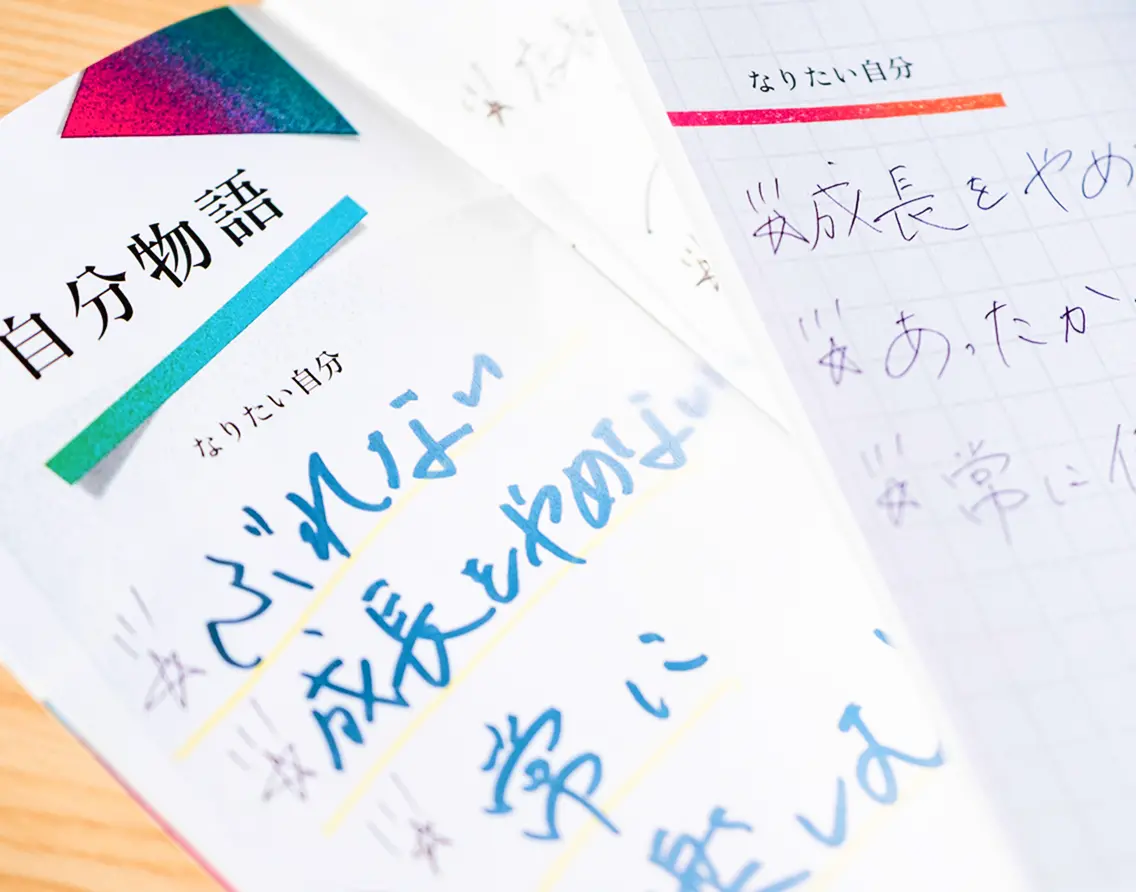 自分物語
なりたい自分
ぶれない
成長をやめない
常に
楽しむ
なりたい自分
成長をやめ
あったか
常に